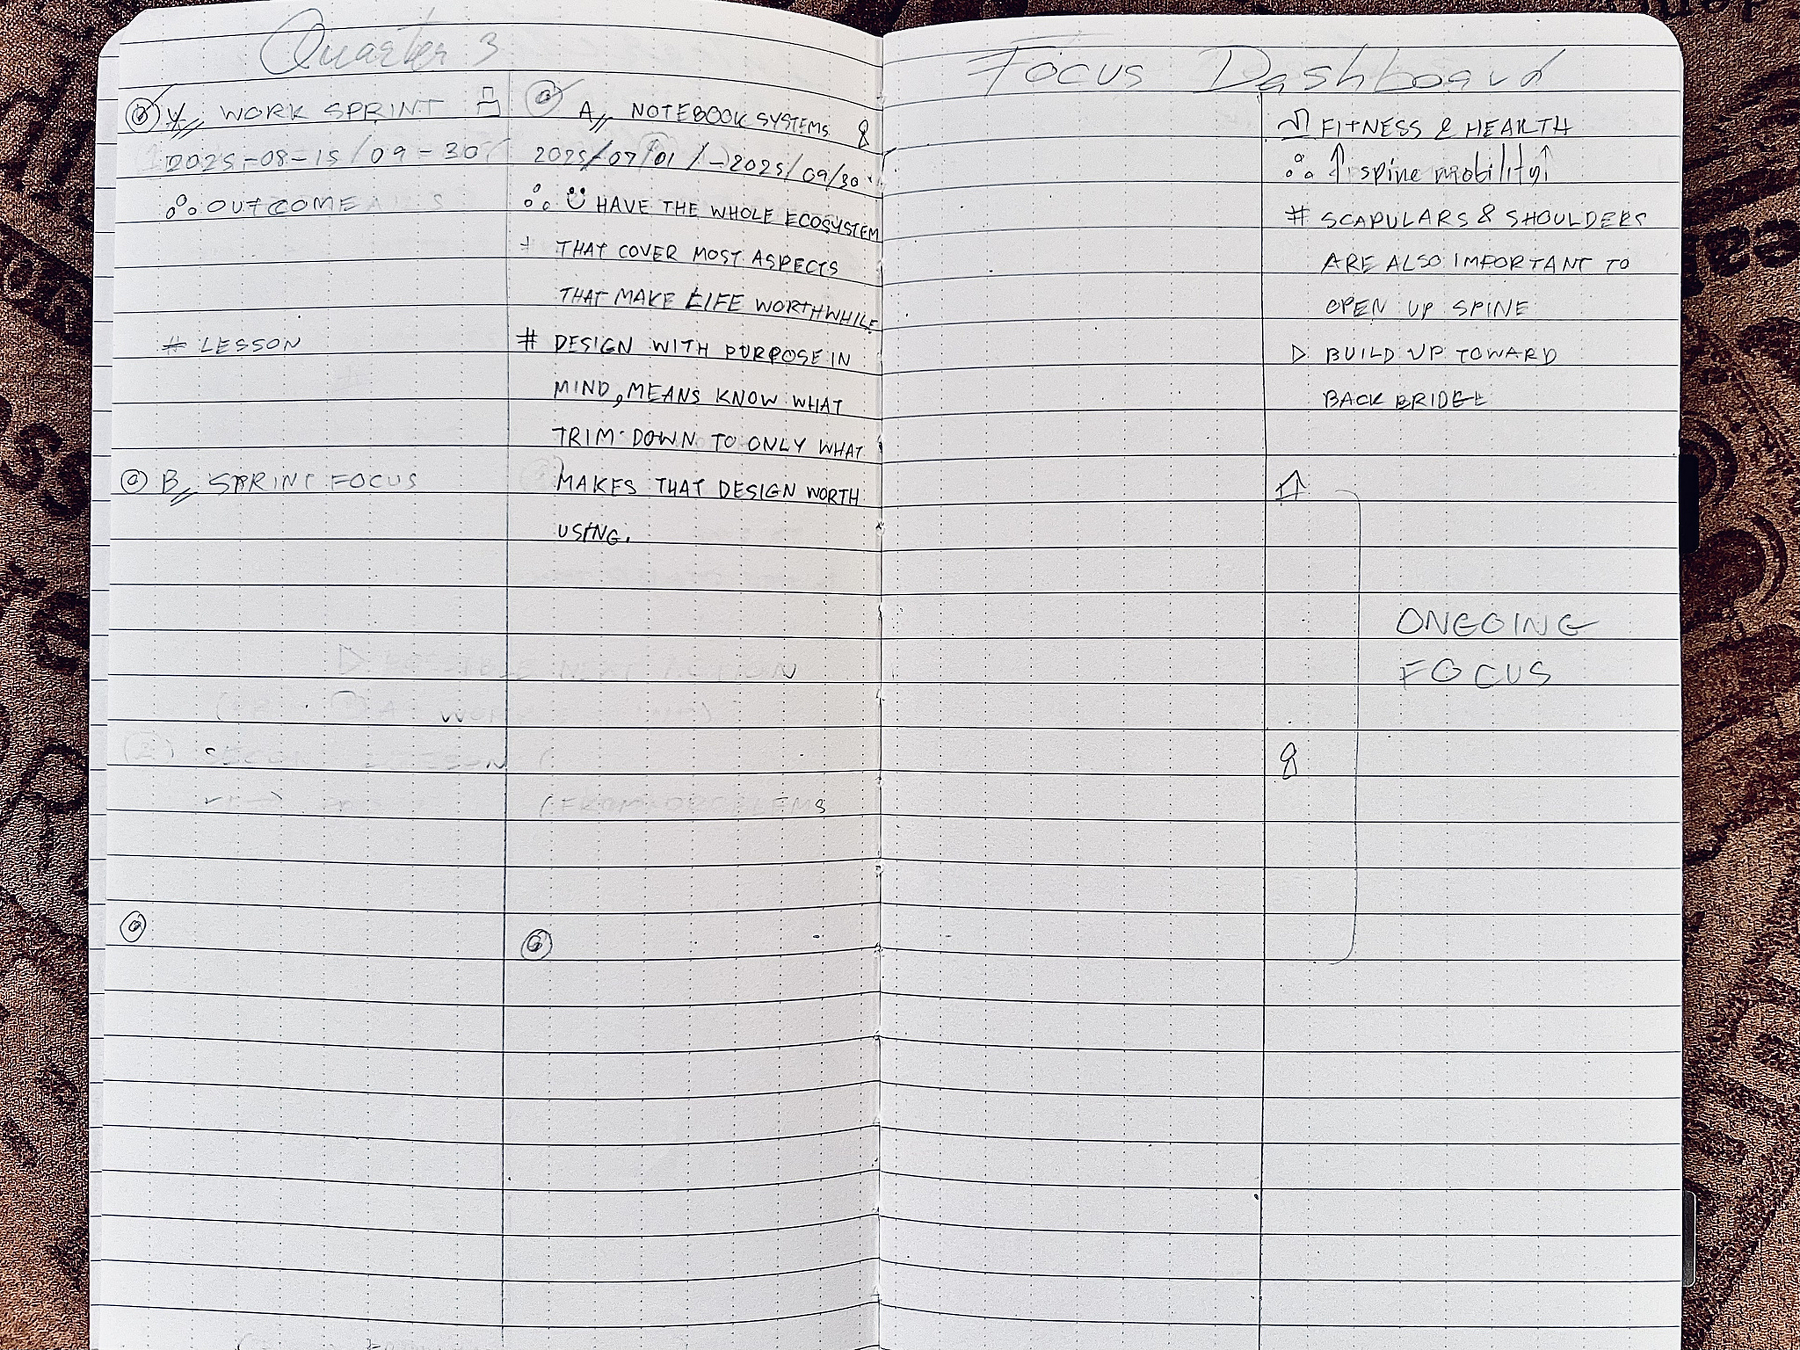 Quarter 3
WORK SPRINT
2025-08-15 / 09-30
OUTCOME
# LESSON
B// SPRINT FOCUS
A// NOTEBOOK SYSTEMS 8
2025/07/01 / - 2025/09/30
HAVE THE WHOLE ECOSYSTEM
THAT COVER MOST ASPECTS
THAT MAKE LIFE WORTHWHILE
# DESIGN WITH PURPOSE IN
MIND, MEANS KNOW WHAT
TRIM DOWN TO ONLY WHAT
MAKES THAT DESIGN WORTH
USING.
NEXT ACTION
Focus Dashboard
FITNESS & HEALTH
↑ spine mobility ↑
# SCAPULARS & SHOULDERS
ARE ALSO IMPORTANT TO
OPEN UP SPINE
▷ BUILD UP TOWARD
BACK BRIDGE
ONGOING
FOCUS
8